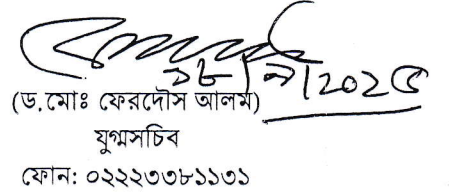 ১৮/৯/২০২৫
(ড.মোঃ ফেরদৌস আলম)
যুগ্মসচিব
ফোন: ০২২২৩৩৮১১৩১